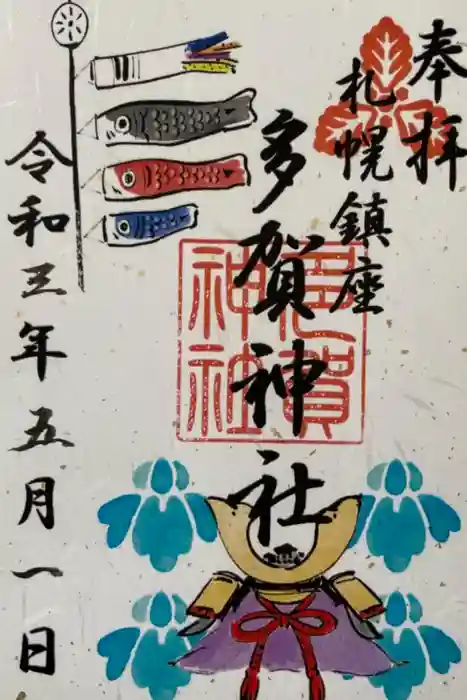 奉拝
札幌鎮座
多賀神社
多賀
神社
令和三年五月一日